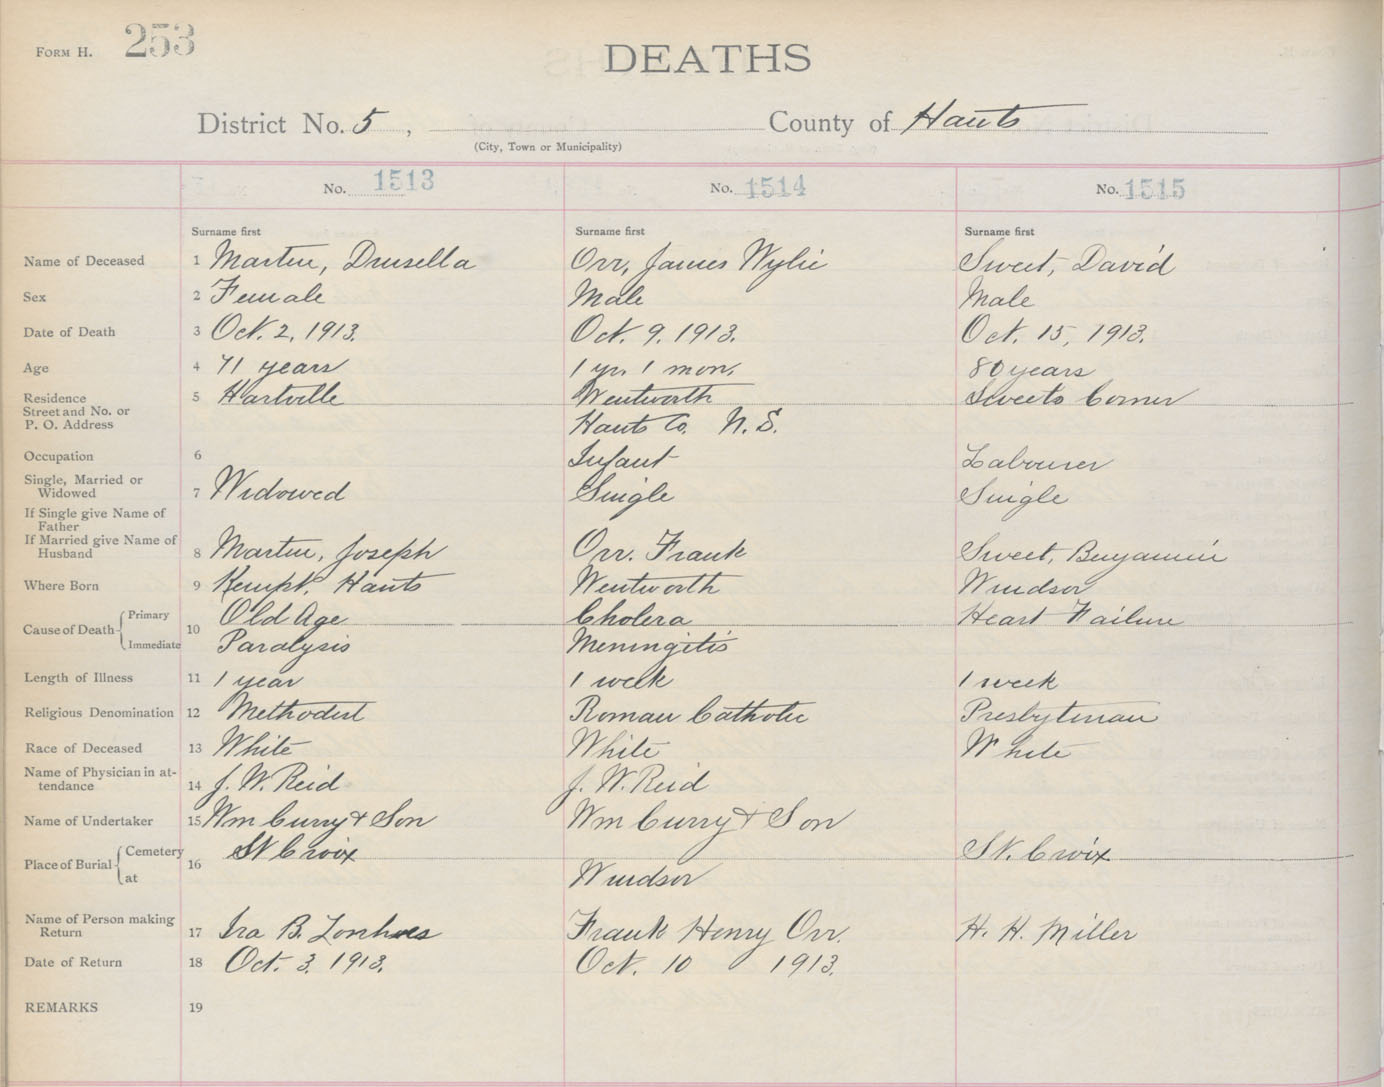 FORM H. 253
DEATHS
District No. 5, County of Hants
(City, Town or Municipality)
No. 1513 No. 1514 No. 1515
Surname first Surname first Surname first
Name of Deceased 1 Martin, Drusella Orr, James Wylie Sweet, David
Sex 2 Female Male Male
Date of Death 3 Oct. 2, 1913. Oct. 9, 1913. Oct. 15, 1913.
Age 4 71 years 1 yr. 1 mon. 80 years
Residence 5 Hartville Wentworth Sweets Corner
Street and No. or
P. O. Address Hants Co. N. S.
Occupation 6 Infant Labourer
Single, Married or
Widowed 7 Widowed Single Single
If Single give Name of
Father
If Married give Name of
Husband 8 Martin, Joseph Orr. Frank Sweet, Benjamin
Where Born 9 Kempt, Hants Wentworth Windsor
Cause of Death 10 Primary Old Age Cholera Heart Failure
Immediate Paralysis Meningitis
Length of Illness 11 1 year 1 week 1 week
Religious Denomination 12 Methodist Roman Catholic Presbyterian
Race of Deceased 13 White White White
Name of Physician in at-
tendance 14 J. W. Reid J. W. Reid
Name of Undertaker 15 Wm Curry & Son Wm Curry & Son
Place of Burial 16 Cemetery St Croix St. Croix
at Windsor
Name of Person making
Return 17 Ira B. Frank Henry Orr. H. H. Miller
Date of Return 18 Oct. 3. 1913. Oct. 10 1913.
REMARKS 19